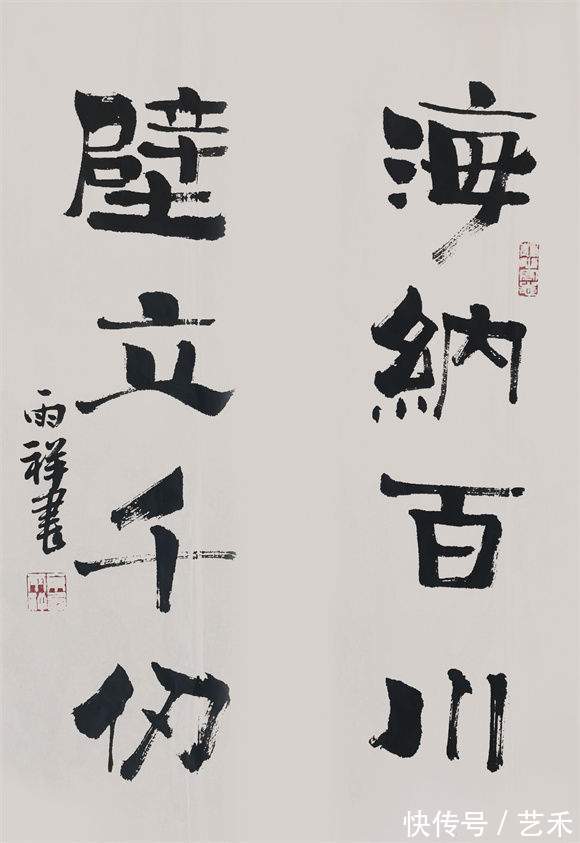 海納百川
壁立千仞
雨祥書
快传号 / 艺禾